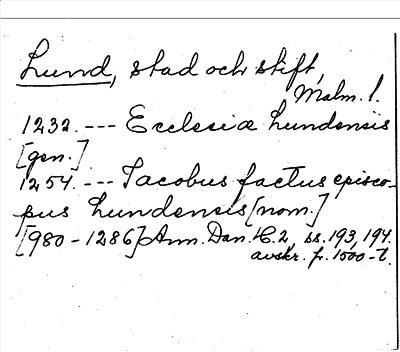 Lund, stad och stift,
Malm. l.
1232. --- Ecclesiæ Lundensis
[gen.]
1254. --- Jacobus factus episco-
pus Lundensis [nom.]
[980-1286] Ann. Dan. H. 2, ss. 193, 194.
avskr. fr. 1500-t.